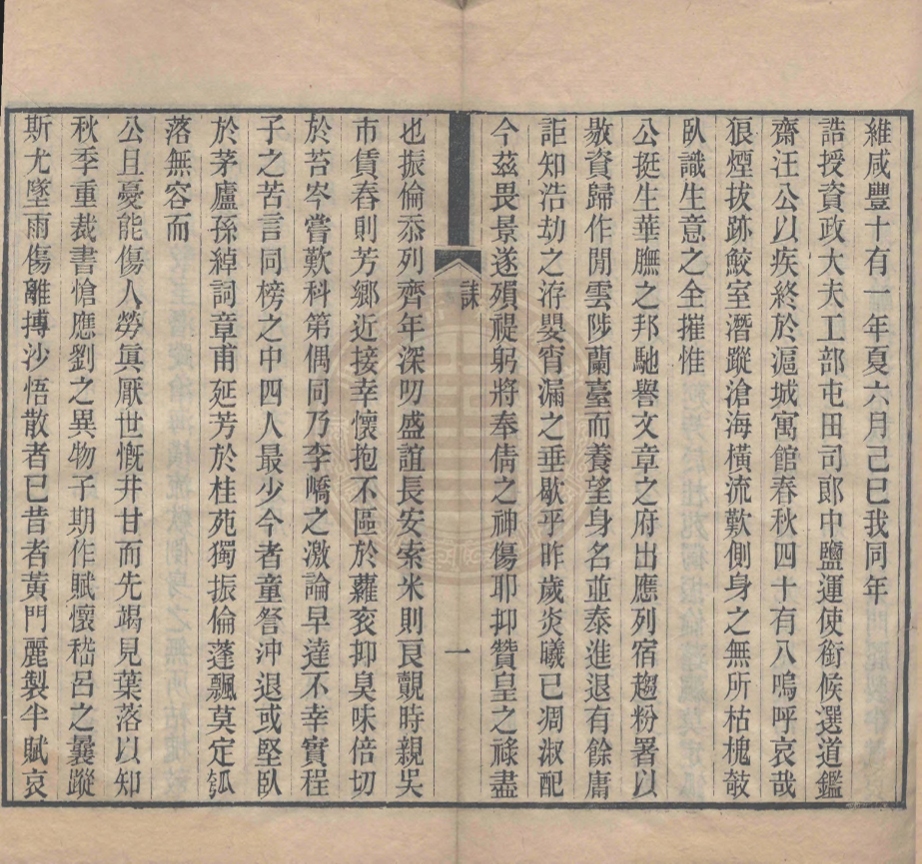 維咸豐十有一年夏六月己巳我同年
誥授資政大夫工部屯田司郎中鹽運使銜候選道鑑
齋汪公以疾終於滬城寓館春秋四十有八嗚呼哀哉
狼煙拔跡鮫室潛蹤滄海橫流歎側身之無所枯槐攲
臥識生意之全摧惟
公挺生華膴之邦馳譽文章之府出應列宿趨粉署以
敭資歸作閒雲陟蘭臺而養望身名並泰進退有餘庸
詎知浩劫之洊嬰宵漏之垂歇乎昨歲炎曦已凋淑配
今茲畏景遂殞禔躬將奉倩之神傷耶抑贊皇之祿盡
誄
一
也振倫忝列齊年深叨盛誼長安索米則良覿時親吳
市賃舂則芳鄉近接幸懷抱不區於蘿荄抑臭味倍切
於苔岑嘗歎科第偶同乃李嶠之激論早達不幸實程
子之苦言同榜之中四人最少今者童詧沖退或堅臥
於茅廬孫綽詞章甫延芳於桂苑獨振倫蓬飄莫定瓠
落無容而
公且憂能傷人勞真厭世慨井甘而先竭見葉落以知
秋季重裁書愴應劉之異物子期作賦懷嵇呂之曩蹤
斯尤墜雨傷離摶沙悟散者已昔者黃門麗製半賦哀